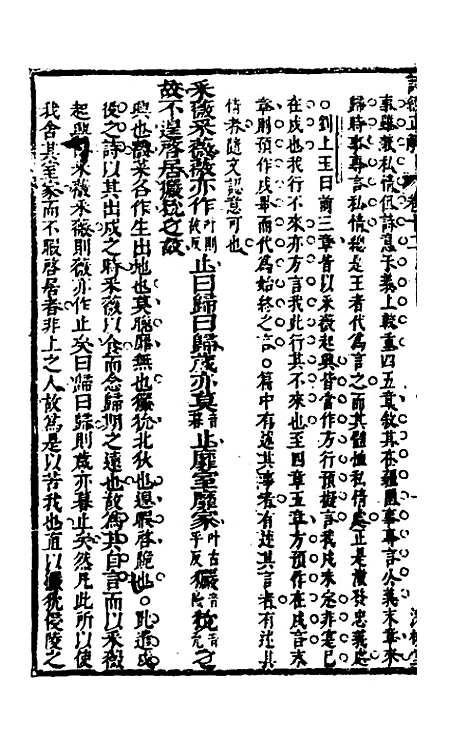 事雖敘私情但詩意于義上較重四五章敘其在疆圉事專言公義末章來
歸時事專言私情總是王者代為言之而其體恤私情處正是激發忠義處
○劉上玉曰前三章皆以采薇起興皆當作方行預擬言我戍未定非實已
在戍也我行不來亦方言我此行其不來也至四章五章方預作在戍言末
章則預作戍畢而代為始終之言○篇中有述其事者有述其言者有述其
情者隨文認意可也
采薇采薇薇亦作止曰歸曰歸歲亦莫止靡室靡家玁狁之
故不遑啓居玁狁之故
興也薇菜名作生出地也莫晚靡無也玁狁北狄也遑暇啓跪也○此遣戍
役之詩以其出戍之時采薇以食而念歸期之遠也故為其自言而以采薇
起興曰采薇采薇則薇亦作止矣曰歸曰歸則歲亦暮止矣然凡此所以使
我舍其室家而不暇啓居者非上之人故為是以苦我也直以玁狁侵陵之